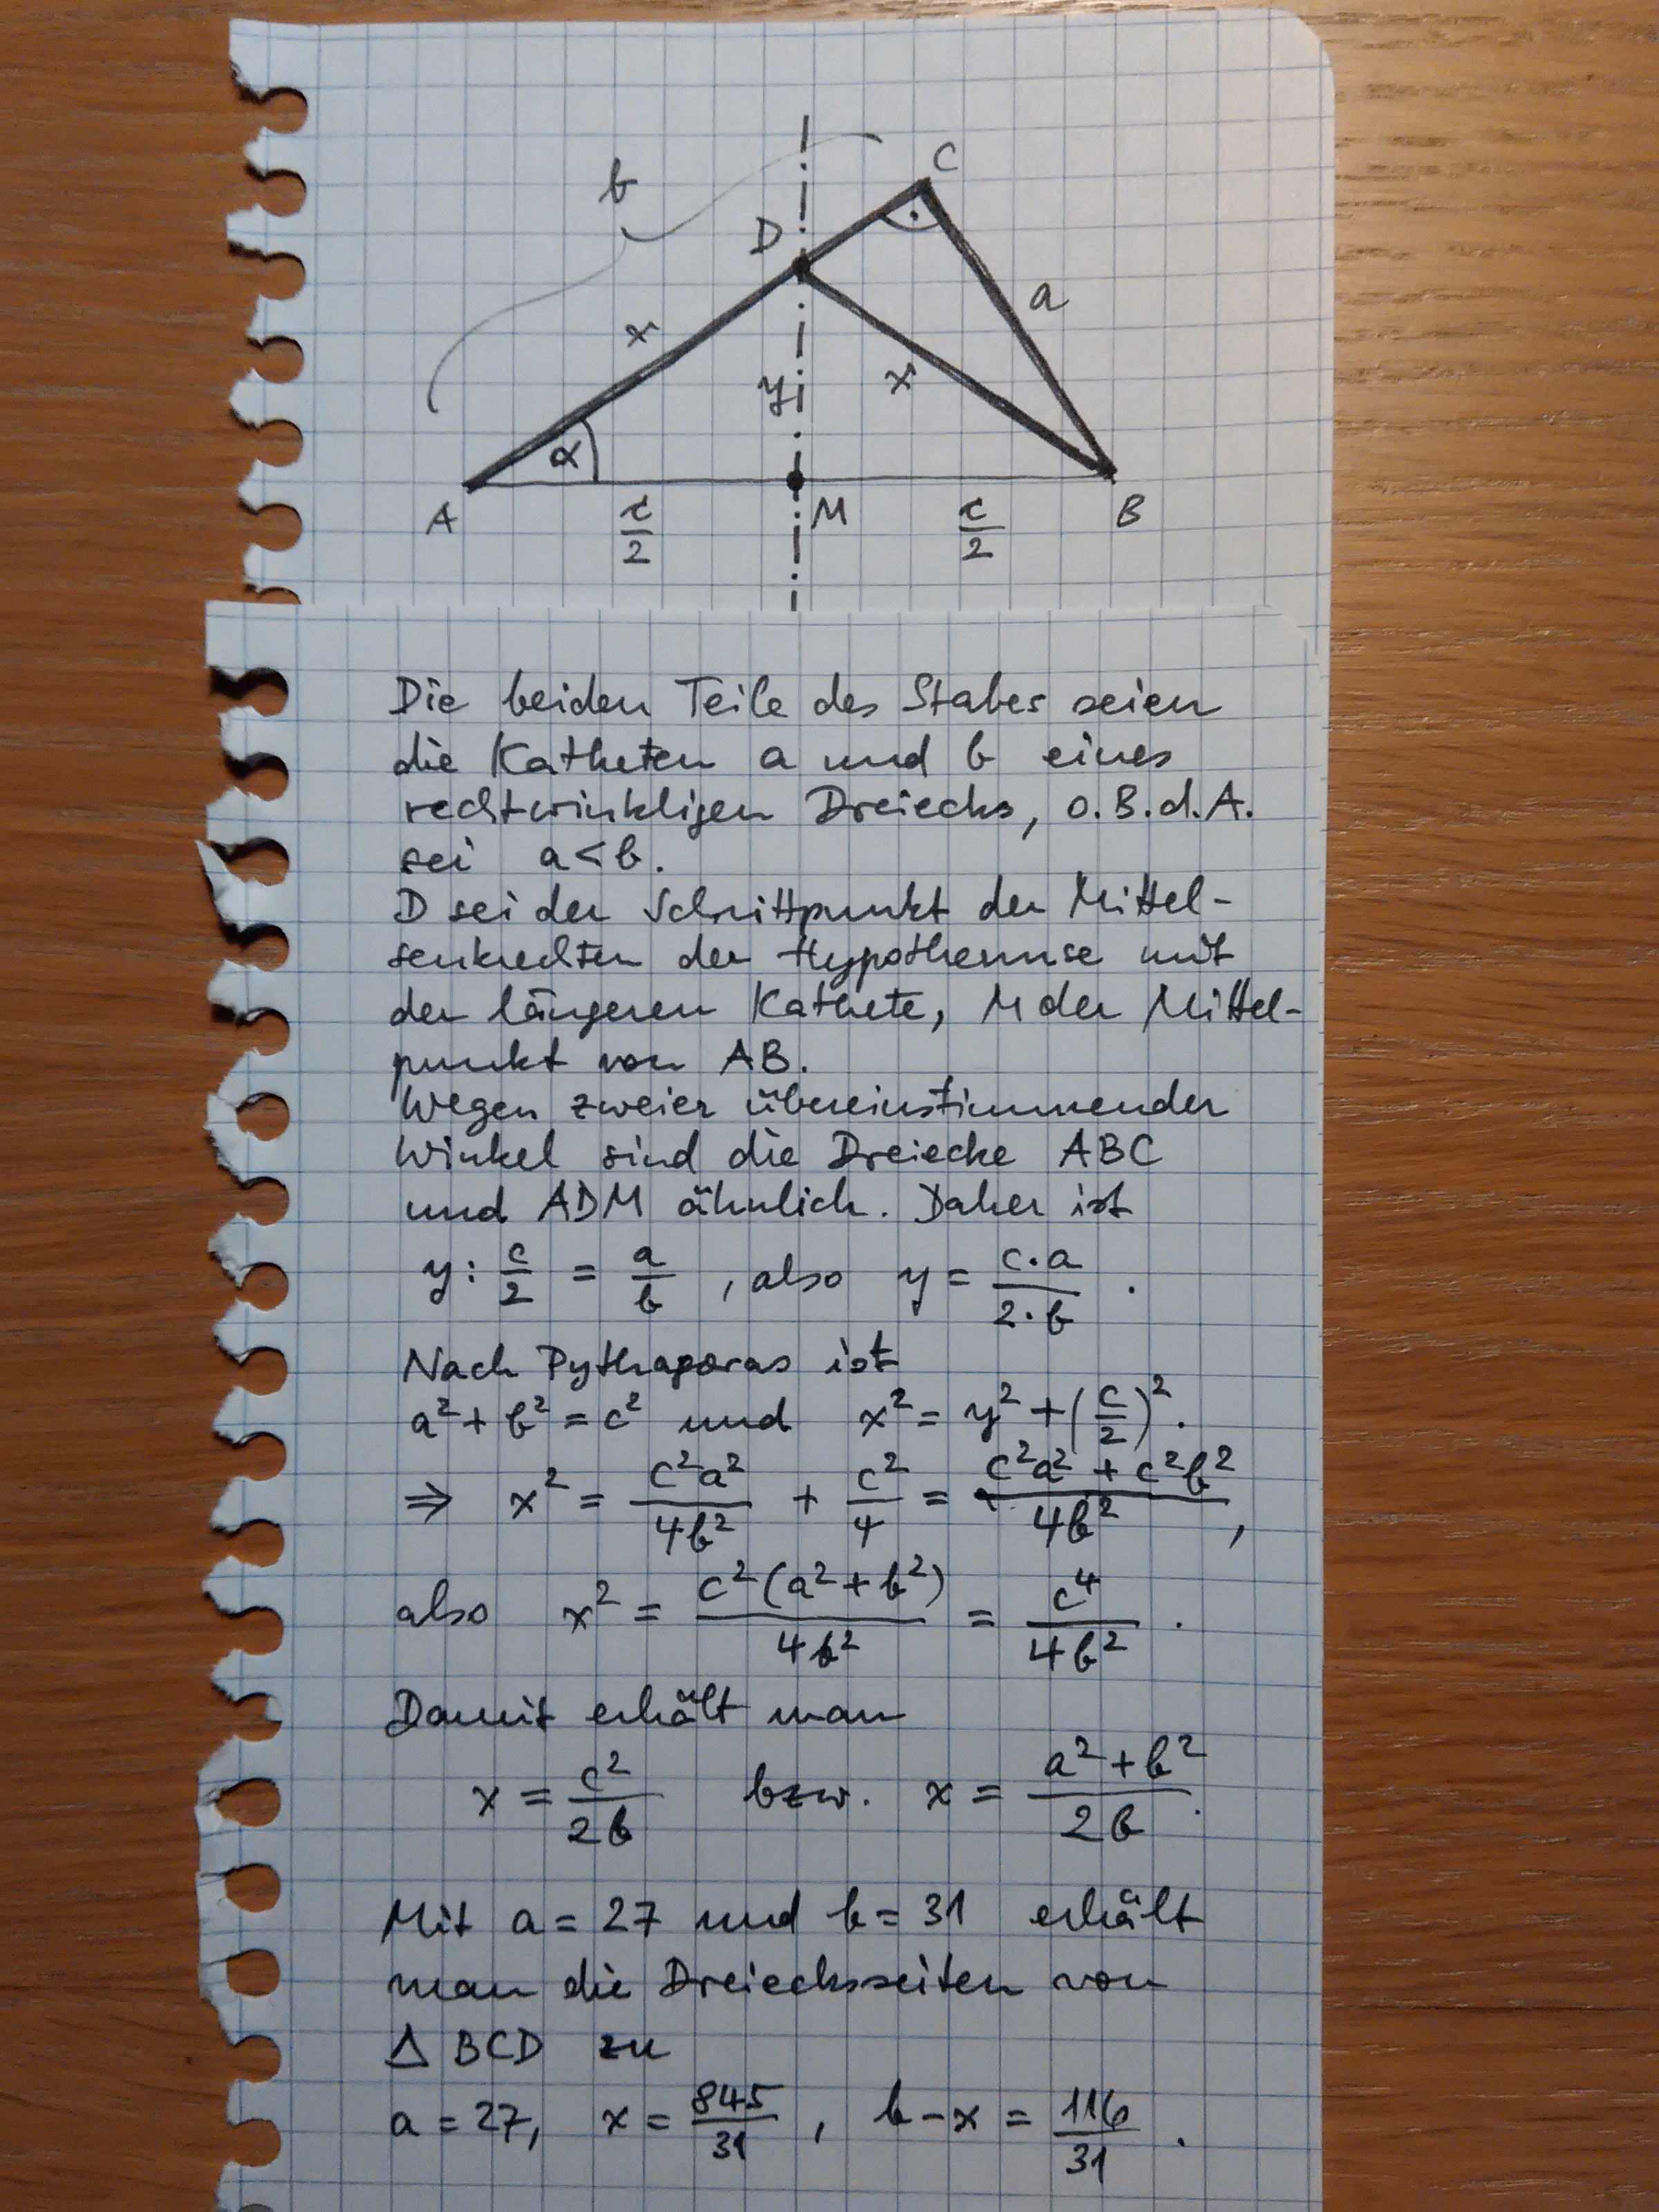 b
C
D
a
x
y
x
α
A
c/2
M
c/2
B
Die beiden Teile des Stabes seien
die Katheten a und b eines
rechtwinkligen Dreiecks, o.B.d.A.
sei a<b.
D sei der Schnittpunkt der Mittel-
senkrechten der Hypothenuse mit
der längeren Kathete, M der Mittel-
punkt von AB.
Wegen zweier übereinstimmender
Winkel sind die Dreiecke ABC
und ADM ähnlich. Daher ist
y : c/2 = a/b , also y = c·a/2·b .
Nach Pythagoras ist
a² + b² = c² und x² = y² + (c/2)².
⇒ x² = c²a²/4b² + c²/4 = c²a² + c²b²/4b² ,
also x² = c²(a²+b²)/4b² = c⁴/4b² .
Damit erhält man
x = c²/2b bzw. x = a²+b²/2b .
Mit a = 27 und b = 31 erhält
man die Dreiecksseiten von
Δ BCD zu
a = 27, x = 845/31 , b-x = 116/31 .